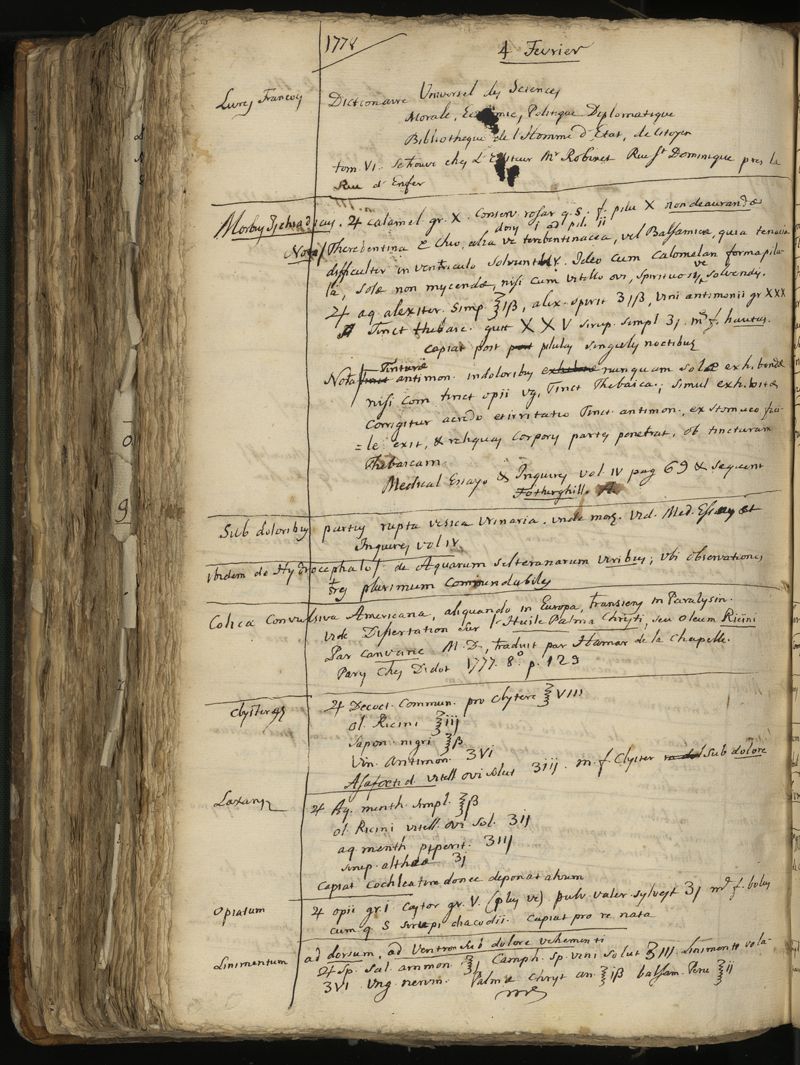 1778
4 Fevrier
Livres Francois Dictionaire Universel des Sciences
Morale, Economic, Politique Deplomatique
Bibliotheque de l'Homme d'Etat, de Citoyen
tom VI. se trouve chez L'Editeur Mr Robinet Rue St Dominique pres la
Rue d'Enfer
Morbus Ischiadicus. ♃ calamel gr. X. Conserv. rosar q. S. f. pilu X non deaurandæ
dosis j ad pil. ij
Nota Therebentina è Chio, alia ve terebentinacea, vel Balsamica, quia tenacia
difficulter in ventriculo solvuntur. Ideo cum Calomelan forma pilu-
la, solæ non mycendæ, nisi cum vitello ovi, spirituosi ve solvendis.
♃ aq. alexiter. simp ℥iß, alex. spirit ʒiß, vini antimonii gr XXX
Tinct thebaic. gutt XXV sirup. simpl ʒj. m f. haustus.
Capiat post pilulas singulis noctibus
Nota Tincturæ antimon. in doloribus nunquam solæ exhibendæ
nisi com tinct opii vg. Tinct Thebaica; simul exhibitæ
Corrigitur acredo et irritatio Tinct. antimon., ex stomaco faci=
=le exit, & reliquas Corporis partes penetrat, ob tincturam
Thebaicam
Medical Essays & Inquires vol. IV pag 69 & sequent
Fotherghill. A
Sub doloribus partus rupta vesica urinaria. unde mors. vid. Med. Essays et
Inquires vol IV.
ibidem de Hydrocephalo. de Aquarum selteranarum viribus; ubi observationes
tres plurimum Commendabiles
Colica Convulsiva Americana, aliquando in Europa, transiens in Paralysin.
vide Dissertation sur l'Huile Palma Christi, seu oleum Ricini
Par canvane M.D., traduit par Hamar de la Chapelle.
Paris Chez Didot 1777. 8° p. 129
Clysteres ♃ Decoct. Commun. pro Clystere ℥VIII
ol. Ricini ℥iij
Sapon. nigri ℥ß
Vin. Antimon. ʒVI
Asafoetid. vitell ovi solut ʒiij. m. f. Clyster sub dolore
Laxans ♃ Aq. menth. simpl. ℥ß
ol. Ricini vitell. ovi sol. ʒij
aq menth piperit. ʒiij
sirup. althææ ʒj
Capiat Cochleatim donec deponat alvum
Opiatum ♃ opii gr. i Castor gr. V. (plus ve) pulv. valer sylvest ʒj m f. bolus
cum q. S sirupi diacodii. Capiat pro re nata
Linimentum ad dorsum, ad Ventrem sub dolore vehementi
♃ Sp. Sal. ammon. ℥j Camph. sp. vini solut ℥iii. Linimenti vola-
ʒVI. Ung. nervin. Palmæ Christ an. ℥iß balsam. Peru ℥ii